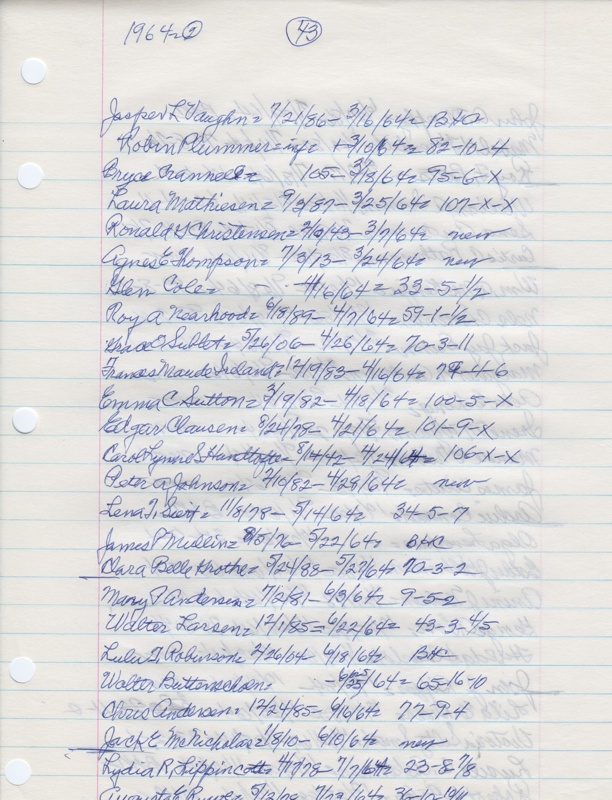 1964-2 43
Jasper L Vaughn = 7/21/86 - 3/16/64 = B+C
Robin Plummer = inf = + 3/10/64 = 82-10-4
Bryce Crannell = 105 - 3/18/64 = 95-6-X
Laura Mathiesen = 9/3/87 - 3/25/64 = 107-X-X
Ronald G Christensen = 43 - 3/7/64 = new
Agnes E Thompson = 7/3/13 - 3/24/64 = new
Glen Cole = - 4/16/64 = 33-5-1/2
Roy A Nearhood = 6/8/89 - 4/7/64 = 59-1-1/2
5/26/06 - 4/26/64 = 70-3-11
Frances Maude Ireland = 12/19/83 - 4/16/64 = 4-6
Emma C Sutton = 3/19/82 - 4/8/64 = 100-5-X
Edgar Clausen = 8/24/78 - 4/21/64 = 101-9-X
Carol Lynne S 8/14/42 - 4/24/64 = 106-X-X
Peter A Johnson = 2/10/82 - 4/29/64 = new
Lena T Scott = 11/8/78 - 5/14/64 = 34-5-7
James P /76 - 5/22/64 = B+C
Clara Belle Krothe = 5/24/88 - 5/27/64 = 70-3-2
Mary P Andersen = 7/2/81 - 6/3/64 = 9-5-2
Walter Larsen = 12/1/85 = 6/22/64 = 43-3-4/5
Lulu G Robinson = 2/26/04 - 6/18/64 B+C
Walter Buttenschoen = - 6/25/64 = 65-16-10
Chris Andersen = 12/24/85 - 6/16/64 = 77-9-4
Jack E McNicholas = 1/8/10 - 6/10/64 = new
Lydia R Lippincott = 4/7/78 - 7/7/64 = 23-8-7/8
Augusta E